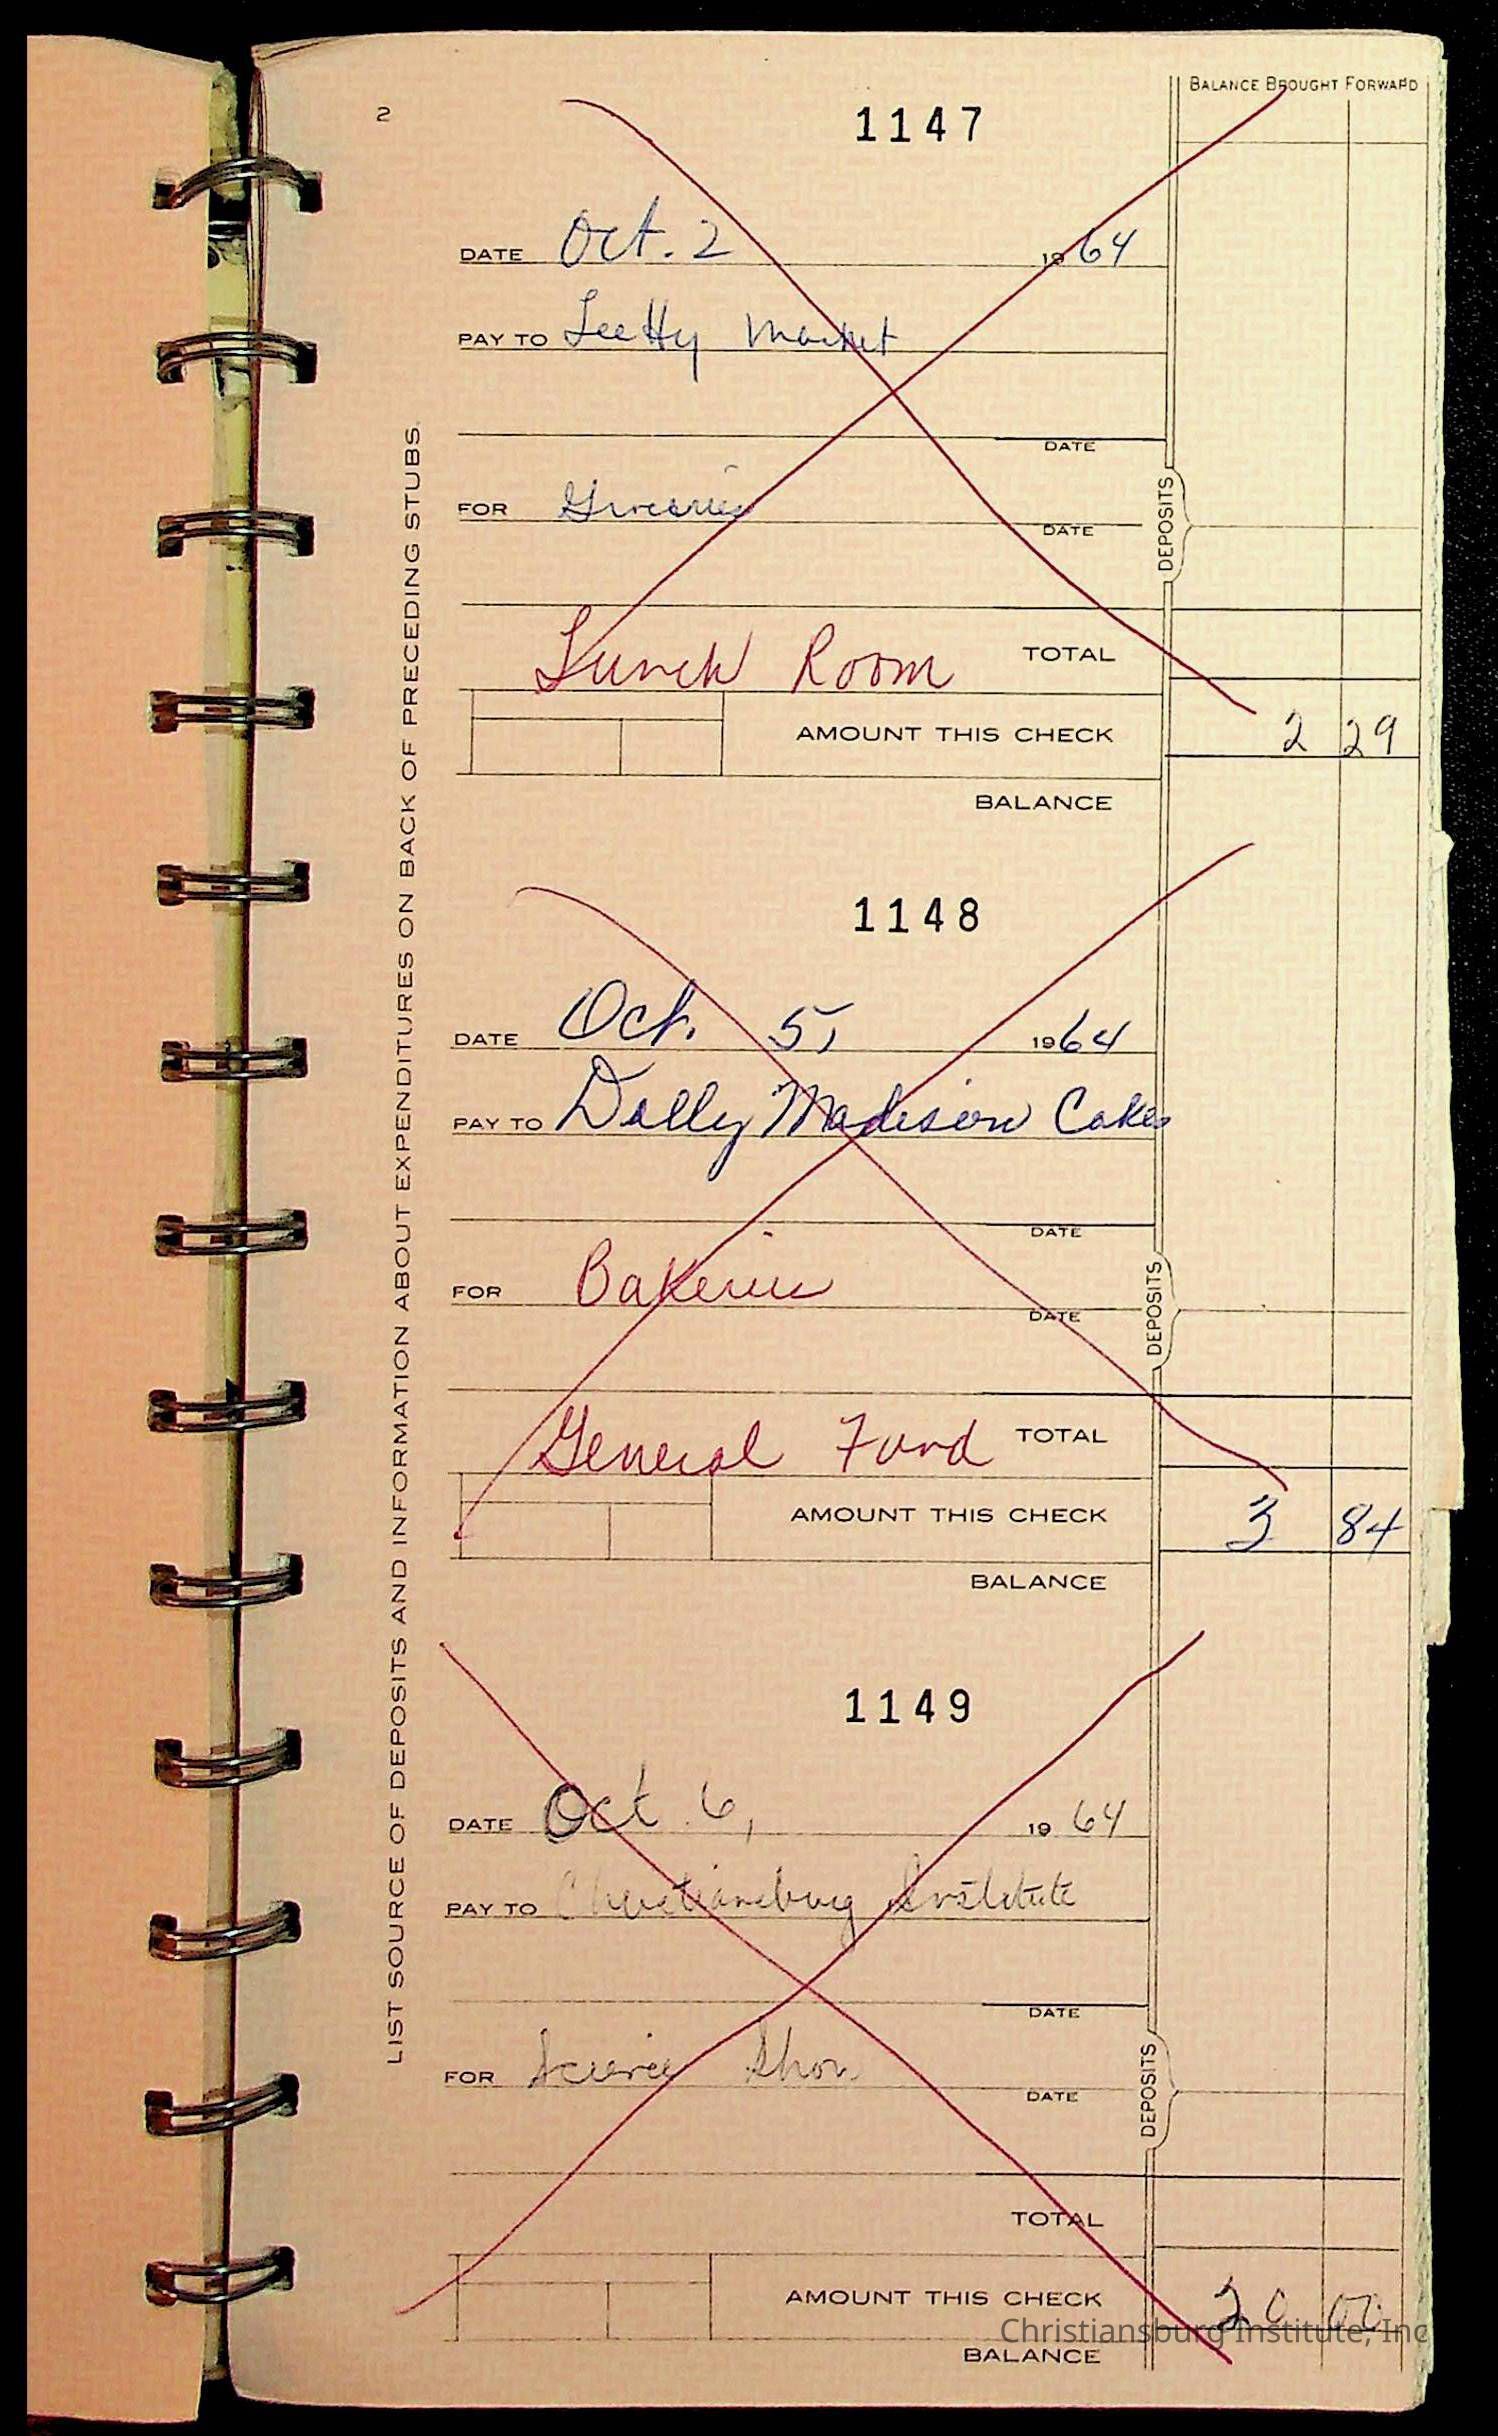 2
BALANCE BROUGHT FORWARD
1147
DATE Oct. 2 1964
PAY TO Leetty Market
DATE
FOR Groceries
DATE
DEPOSITS
Lunch Room TOTAL
AMOUNT THIS CHECK 2 29
BALANCE
1148
DATE Oct. 5, 1964
PAY TO Dolly Madison Cakes
DATE
FOR Bakeries
DATE
DEPOSITS
General Fund TOTAL
AMOUNT THIS CHECK 3 84
BALANCE
1149
DATE Oct 6, 1964
PAY TO Christiansburg Institute
DATE
FOR Science Show
DATE
DEPOSITS
TOTAL
AMOUNT THIS CHECK 20 00
BALANCE
LIST SOURCE OF DEPOSITS AND INFORMATION ABOUT EXPENDITURES ON BACK OF PRECEDING STUBS.
Christiansburg Institute, Inc